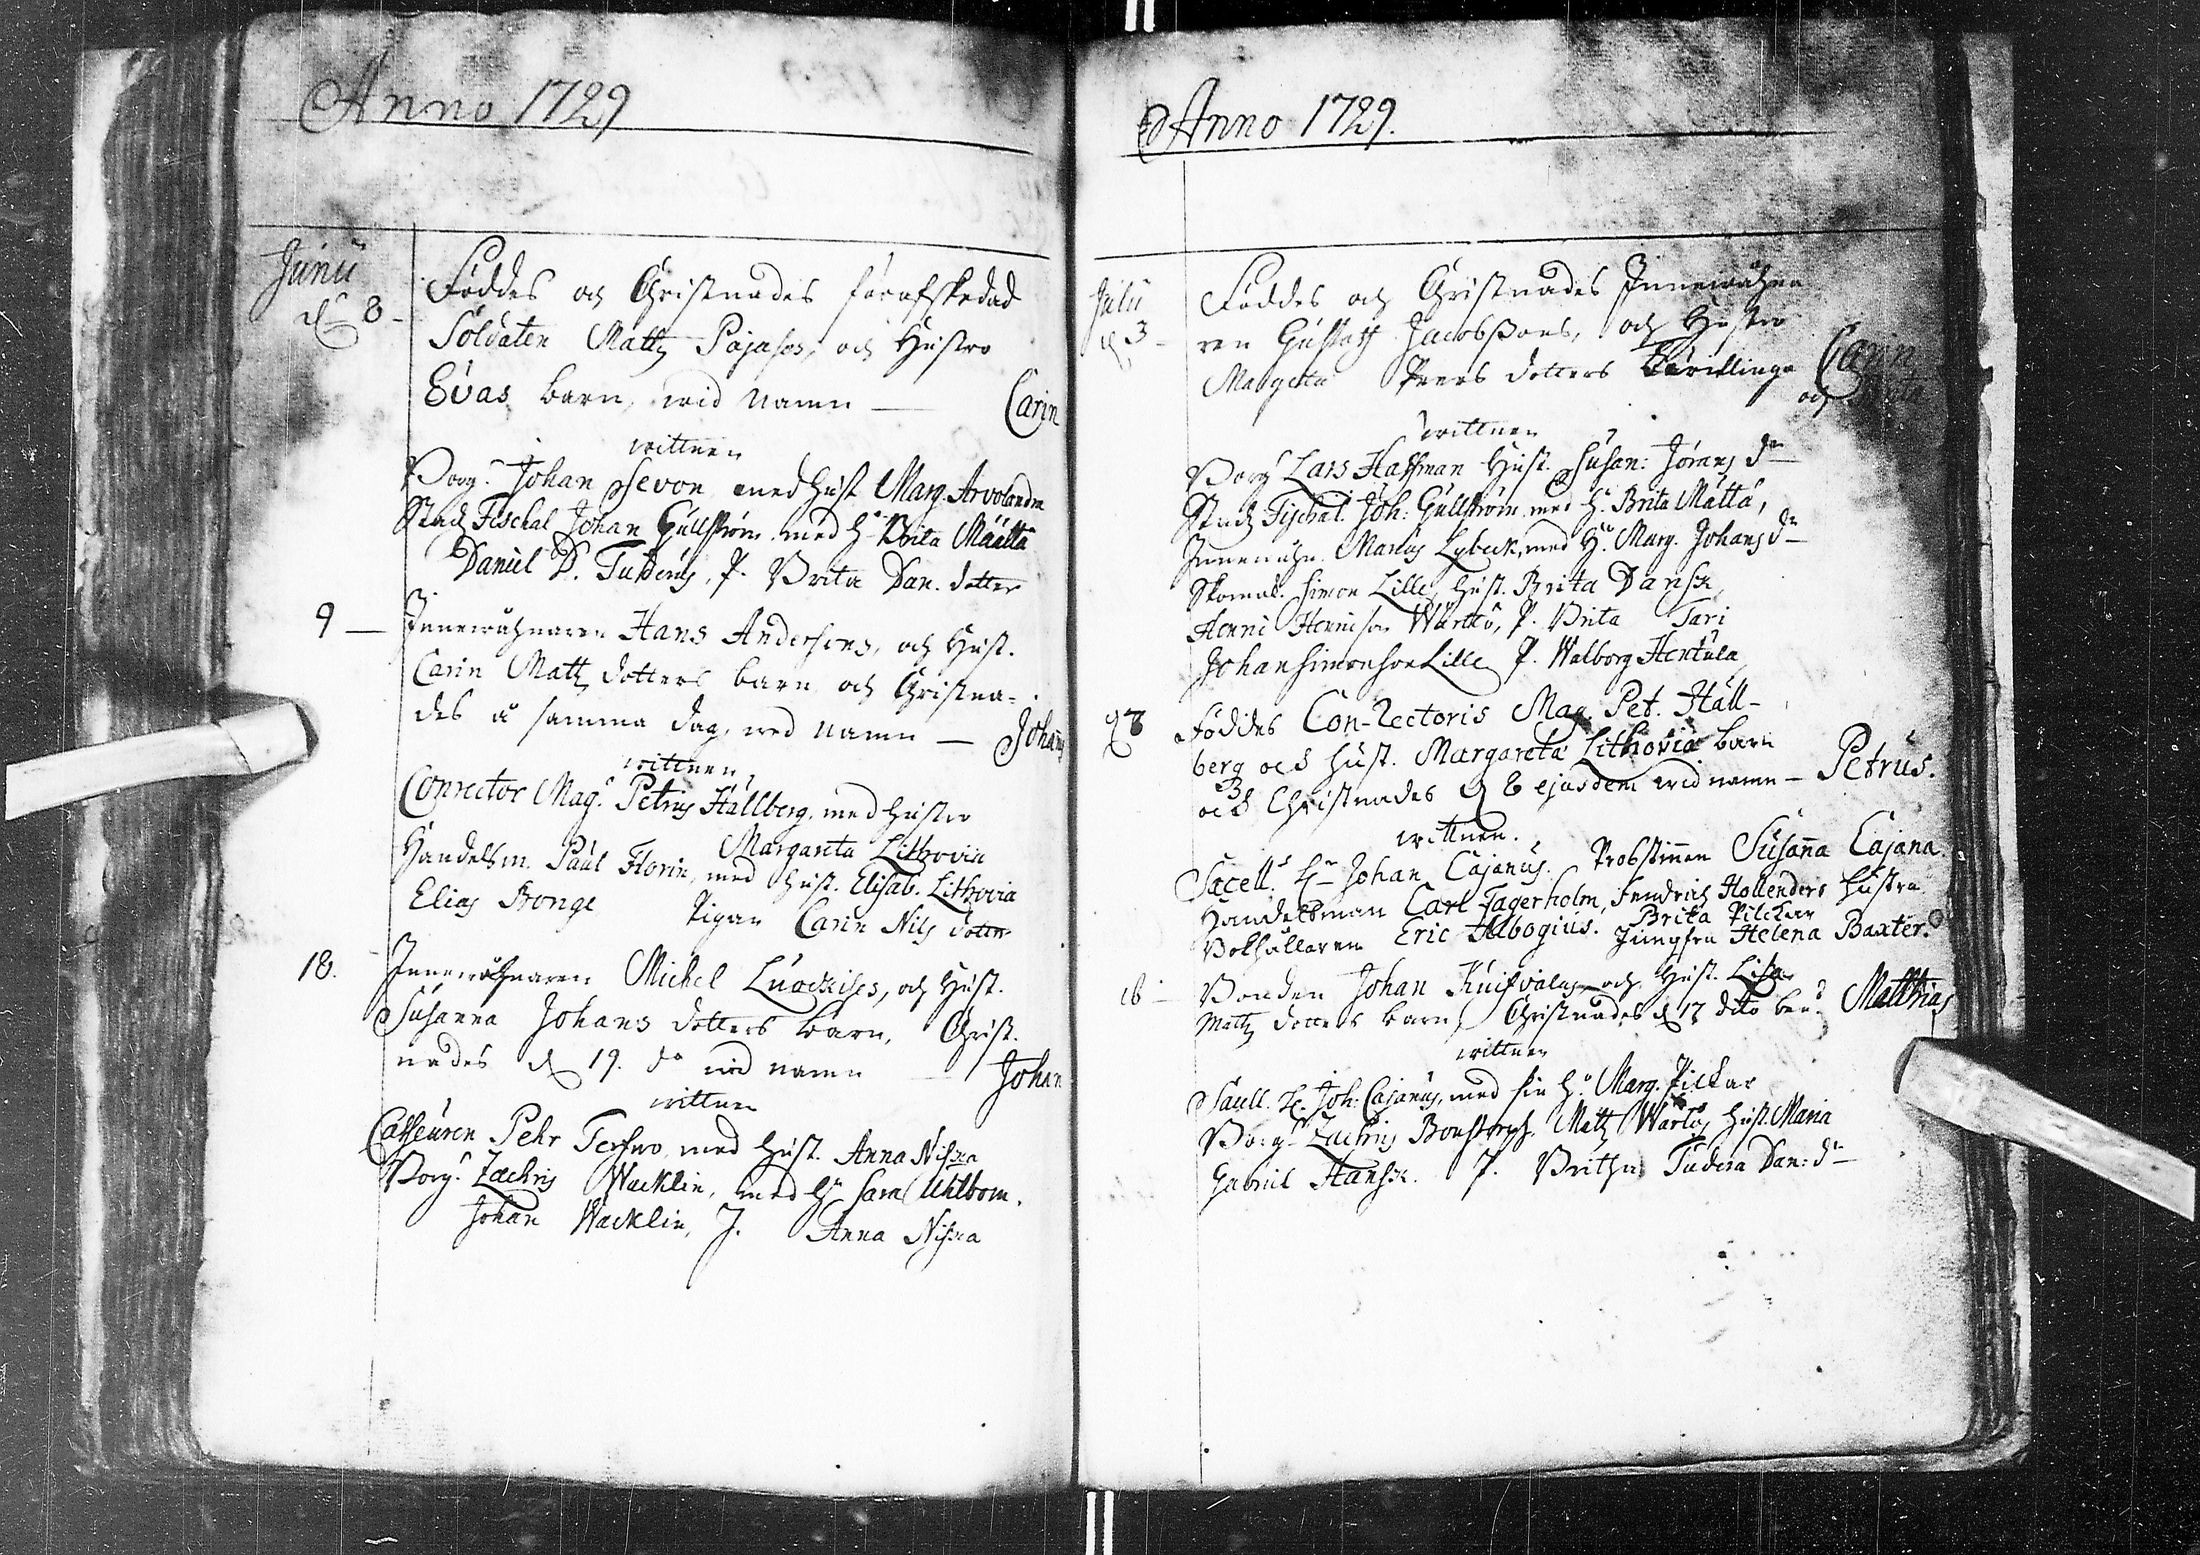 Anno 1729
Junii
d. 8 -
Föddes och Christnades förafskedad
Soldaten Mattz Pajasos, och Hustro
Evas barn, wid namn — Carin
wittnen
Borg. Johan Sevon med hust. Marg. Arvolandra
Stadz Fischal Johan Gullström med h. Brita Määttä
Daniel D. Tuderus, P. Brita Dan. dotter
9 — Innewåhnaren Hans Andersons, och Hust.
Carin Mattz dotters barn och Christna-
des å samma dag, wid namn — Johans
wittnen
Conrector Mag. Petrus Hällberg, med hustro
Margareta Lithovia
Handelsm. Paul Florin, med hust. Elisab. Lithovia
Elias Bonge Pigan Carin Nils dotter
18. Innewåhnaren Michel Luackises, och Hust.
Susanna Johans dotters barn, Christ.
nades d 19. do wid namn Johan
wittnen
Pehr Terfwo, med hust. Anna Niska
Borg. Zachris Wacklin, med h. Sara Uhlbom.
Johan Wacklin, J. Anna Niska
Anno 1729.
Julii
d. 3 -
Föddes och Christnades Innewåhna
ren Gustaf Jacobssons, och Hustro
Margeta Peers dotters Twillinga Carin
och Brita
wittnen
Borg. Lars Haffman Hust. Susan: Jörans dr
Stadz Fischal. Joh: Gullström med h. Brita Mättä,
Innewåhn. Marcus Lybeck, med H. Marg. Johans dr
Skomak. Simon Lille, hust. Brita Dansk
Henric Henricson Wärttö, P. Brita Tari
Johan Simonson Lille P. Walborg Hentula
Föddes Con-Rectoris Mag. Pet. Häll-
berg och hust. Margareta Lithovia barn
och Christnades d 8 ejusdem wid namn — Petrus.
wittnen.
Sacell. Hr Johan Cajanus. Probstinnan Susanna Cajana.
Handelsman Carl Fagerholm, Fendrich Hollenders hustru
Brita Pilckar
Bokhållaren Eric Albogius. Jungfru Helena Baxter.
16 - Bonden Johan Kuifvalas och Hust. Lisa
Mattz dotters barn, Christnades d 17 dito ben. Matthias
wittnen
Sacell. H. Joh: Cajanus, med sin h. Marg. Pilckar
Borg. Zachris Bonstorph. Mattz Wärtös hust. Maria
Gabriel Hansk. P. Britha Tudera Dan: dr